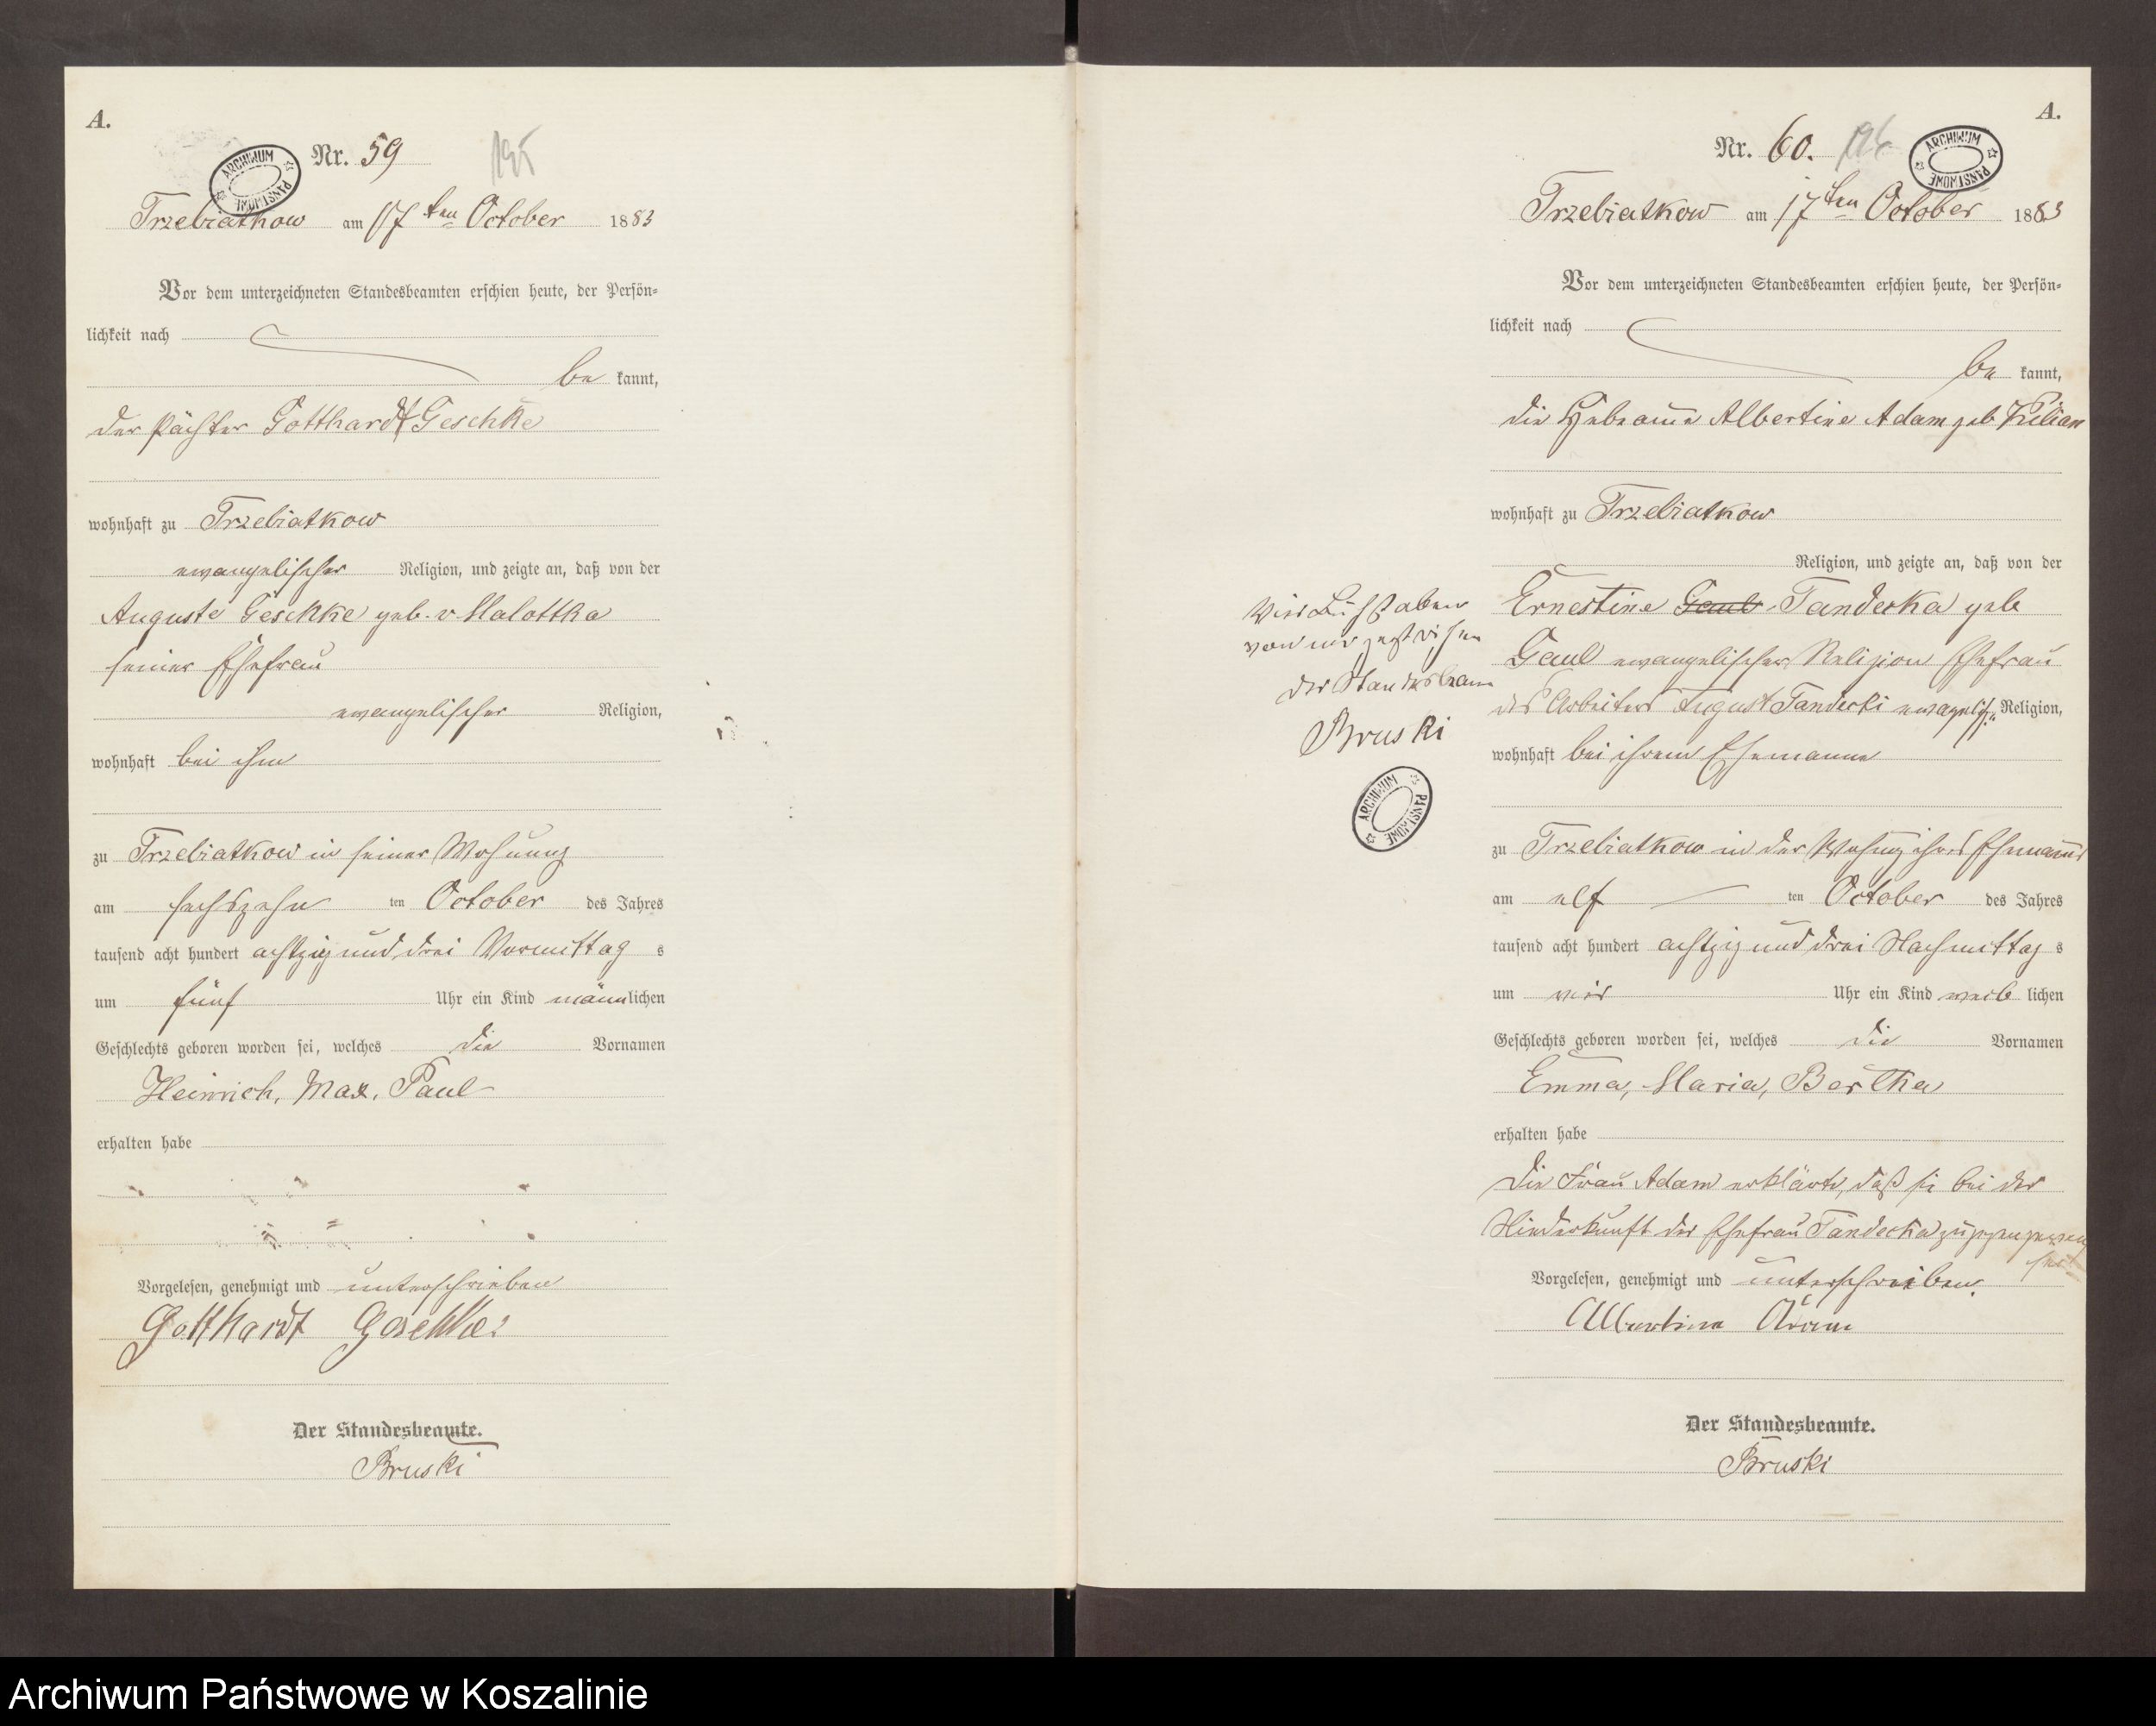 A.
Nr. 59
195
ARCHIWUM PAŃSTWOWE
Trzebiatkow am 17ten October 1883
Vor dem unterzeichneten Standesbeamten erschien heute, der Persön-
lichkeit nach
be kannt,
der Pächter Gotthardt Geschke
wohnhaft zu Trzebiatkow
evangelischer Religion, und zeigte an, daß von der
Auguste Geschke geb. v Malottka
seiner Ehefrau
evangelischer Religion,
wohnhaft bei ihm
zu Trzebiatkow in seiner Wohnung
am sechszehn ten October des Jahres
tausend acht hundert achtzig und drei Vormittag s
um fünf Uhr ein Kind männlichen
Geschlechts geboren worden sei, welches die Vornamen
Heinrich, Max, Paul
erhalten habe
Vorgelesen, genehmigt und unterschrieben
Gotthardt Geschke
Der Standesbeamte.
Bruski
A.
Nr. 60.
196
ARCHIWUM PAŃSTWOWE
Trzebiatkow am 17ten October 1883
Vor dem unterzeichneten Standesbeamten erschien heute, der Persön-
lichkeit nach
be kannt,
die Hebeamme Albertine Adam geb Kilian
wohnhaft zu Trzebiatkow
Religion, und zeigte an, daß von der
Ernestine Gaul Tandecka geb
Gaul evangelischer Religion Ehefrau
des Arbeiters August Tandecki evangelisch. Religion,
wohnhaft bei ihrem Ehemanne
zu Trzebiatkow in der Wohnung ihres Ehemanns
am elf ten October des Jahres
tausend acht hundert achtzig und drei Nachmittag s
um vier Uhr ein Kind weib lichen
Geschlechts geboren worden sei, welches die Vornamen
Emma, Maria, Bertha
erhalten habe
Die Frau Adam erklärte, daß sie bei der
Niederkunft der Ehefrau Tandecka zugegen gewesen
sei
Vorgelesen, genehmigt und unterschrieben.
Albertine Adam
Der Standesbeamte.
Bruski
Vier Buchstaben
von mir gestrichen
Der Standesbeam
Bruski
ARCHIWUM PAŃSTWOWE
Archiwum Państwowe w Koszalinie